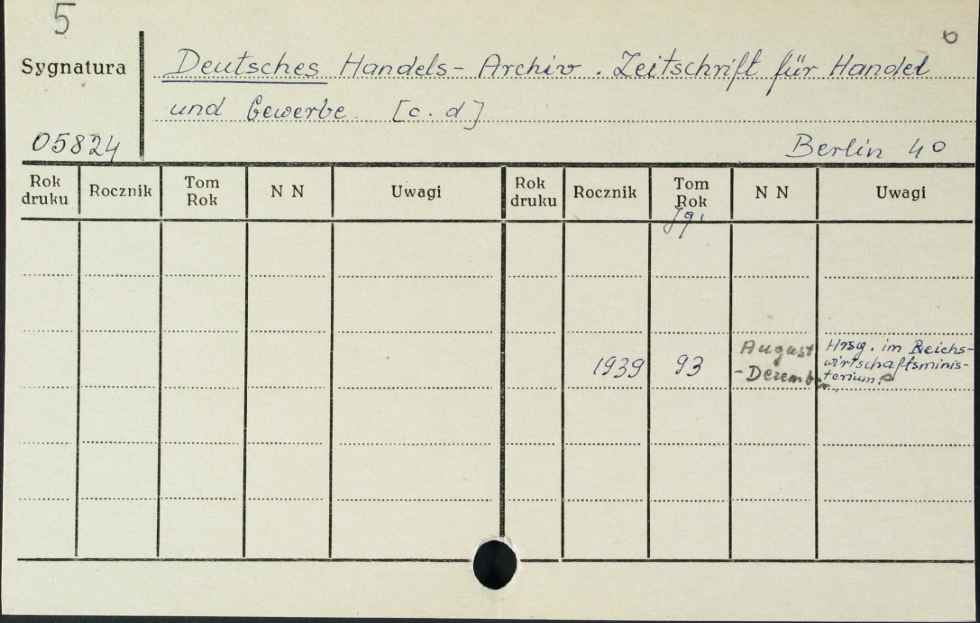 5
6
Sygnatura
Deutsches Handels-Archiv. Zeitschrift für Handel
und Gewerbe. [c. d]
05824
Berlin 4°
Rok druku Rocznik Tom Rok N N Uwagi Rok druku Rocznik Tom Rok N N Uwagi
Jg.
1939 93 August - Dezember Hrsg. im Reichs-
wirtschaftsminis-
terium.